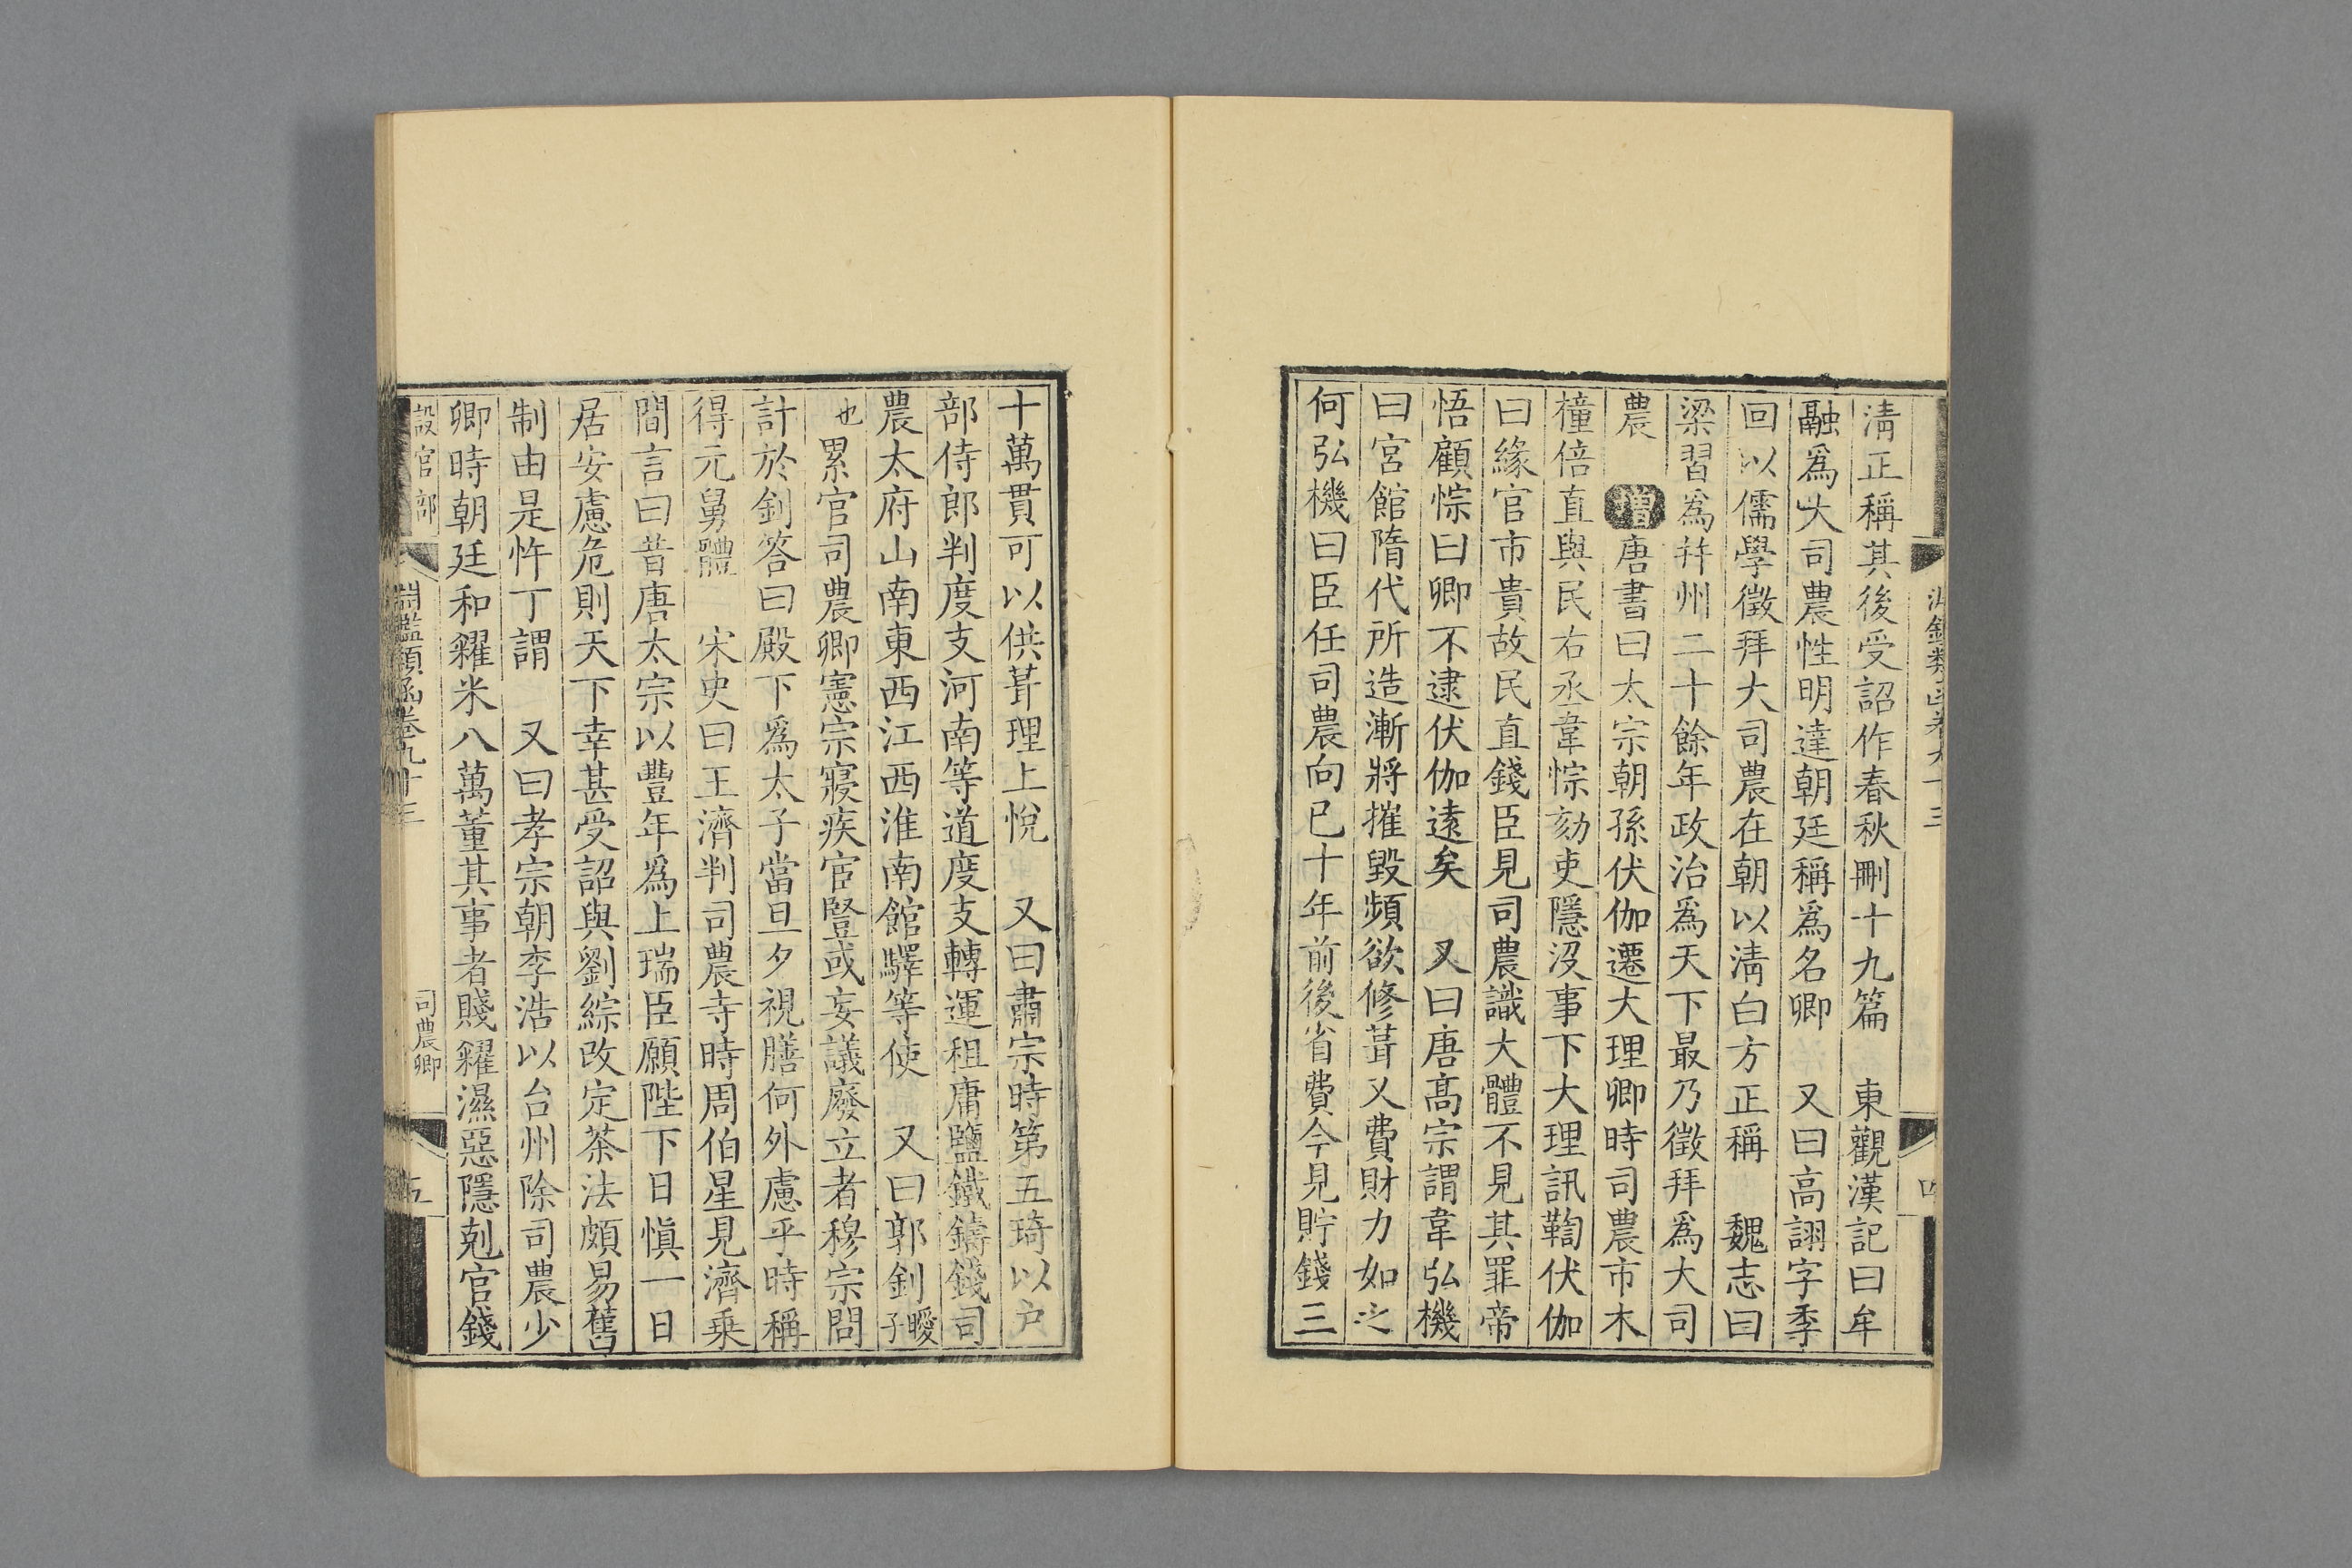 淸正稱其後受詔作春秋刪十九篇　東觀漢記曰牟
融爲大司農性明達朝廷稱爲名卿　又曰高詡字季
回以儒學徵拜大司農在朝以淸白方正稱　魏志曰
梁習爲幷州二十餘年政治爲天下最乃徵拜爲大司
農　增唐書曰太宗朝孫伏伽遷大理卿時司農市木
橦倍直與民右丞韋悰劾吏隱沒事下大理訊鞫伏伽
曰緣官市貴故民直錢臣見司農識大體不見其罪帝
悟顧悰曰卿不逮伏伽遠矣　又曰唐高宗謂韋弘機
曰宮館隋代所造漸將摧毀頻欲修葺又費財力如之
何弘機曰臣任司農向已十年前後省費今見貯錢三
四
十萬貫可以供葺理上悅　又曰肅宗時第五琦以戸
部侍郎判度支河南等道度支轉運租庸鹽鐵鑄錢司
農太府山南東西江西淮南館驛等使　又曰郭釗曖子
也累官司農卿憲宗寢疾宦豎或妄議廢立者穆宗問
計於釗答曰殿下爲太子當旦夕視膳何外慮乎時稱
得元舅體　宋史曰王濟判司農寺時周伯星見濟乗
間言曰昔唐太宗以豐年爲上瑞臣願陛下日愼一日
居安慮危則天下幸甚受詔與劉綜改定茶法頗易舊
制由是忤丁謂　又曰孝宗朝李浩以台州除司農少
卿時朝廷和糴米八萬董其事者賤糴濕惡隱剋官錢
設官部
淵鑑類函卷九十三
司農卿
五